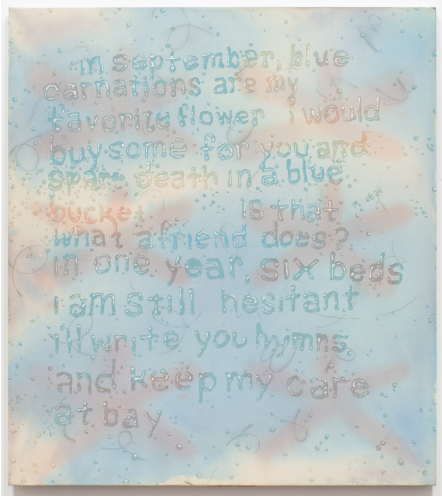 in september, blue
carnations are my
favorite flower i would
buy some for you and
spare death in a blue
bucket is that
what a friend does?
in one year, six beds
i am still hesitant
ill write you hymns
and keep my care
at bay